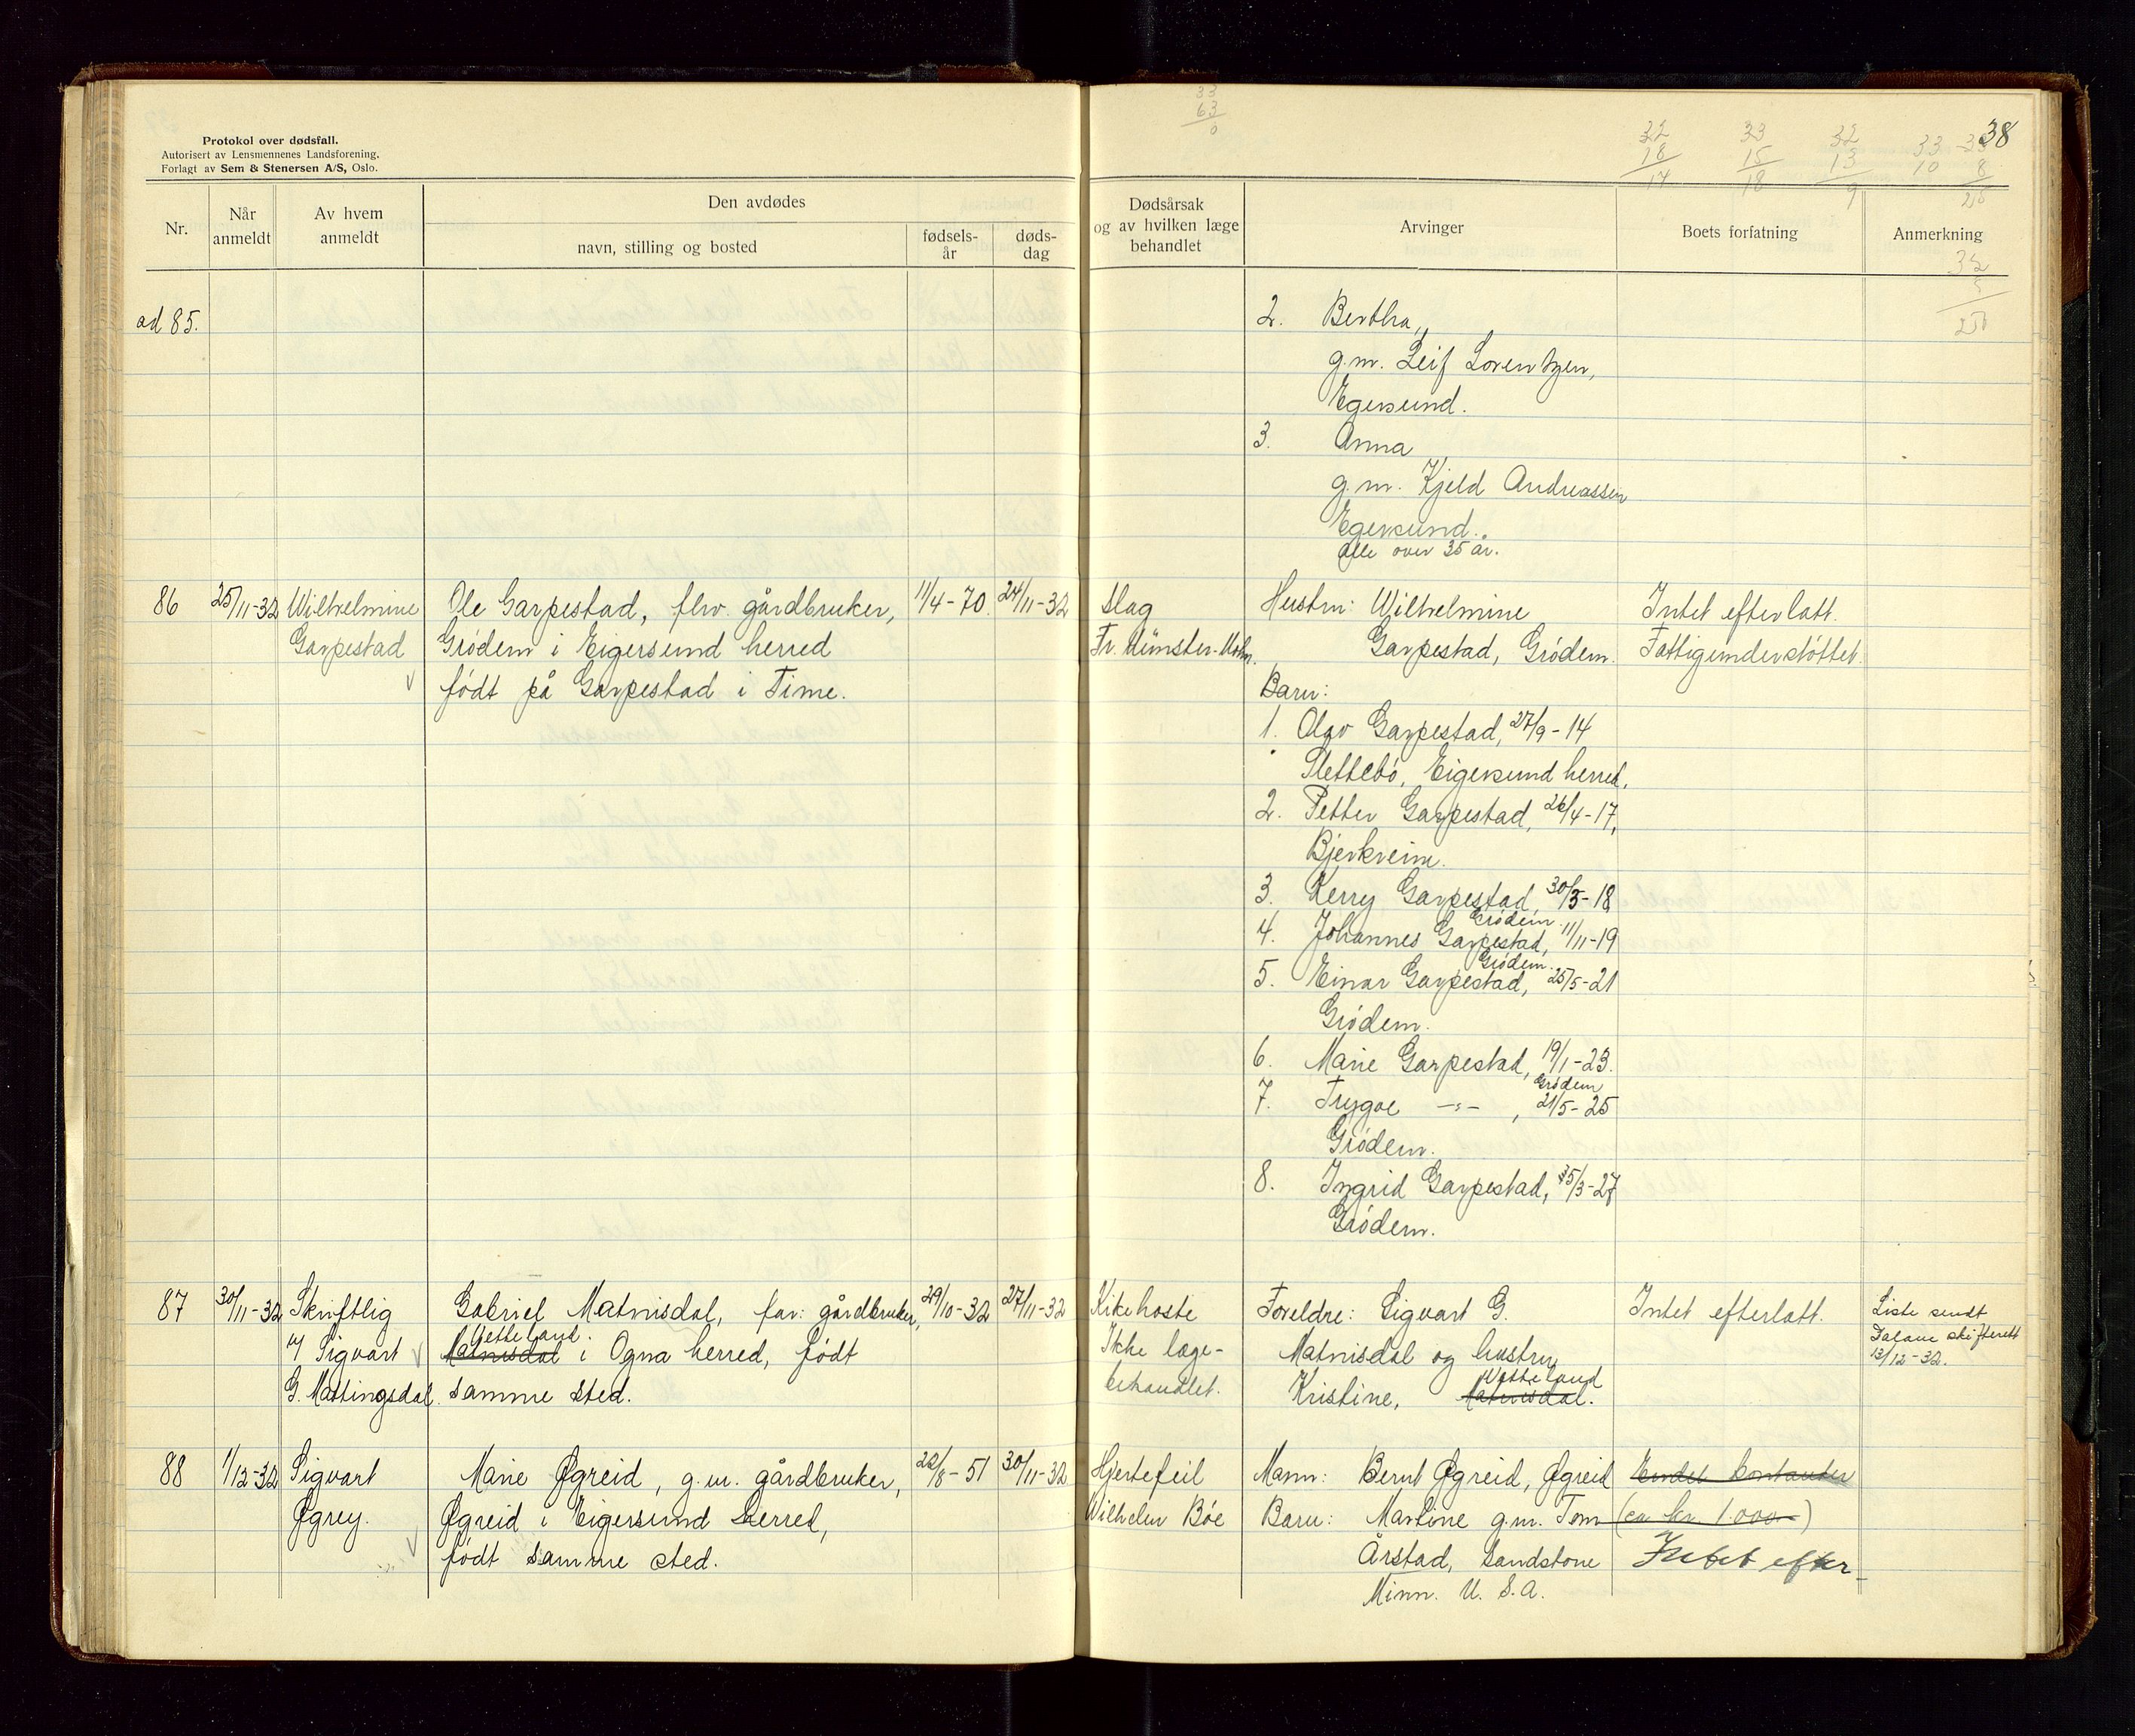 Protokol over dødsfall.
Autorisert av Lensmennenes Landsforening.
Forlagt av Sem & Stenersen A/S, Oslo.
33
63
0
32
18
14
33
15
18
32
13
9
33
10
33
8
25
38
Nr.
Når
anmeldt
Av hvem
anmeldt
Den avdødes
navn, stilling og bosted
fødsels-
år
døds-
dag
Dødsårsak
og av hvilken læge
behandlet
Arvinger
Boets forfatning
Anmerkning
ad 85.
2. Bertha,
g.m. Leif Lorentzen,
Egersund.
3. Anna
g.m. Kjeld Andreassen
Egersund.
Alle over 35 år.
86
25/11-32
Wilhelmine
Garpestad
Ole Garpestad, fhv. gårdbruker,
Grødem i Eigersund herred
født på Garpestad i Time.
11/4-70.
24/11-32
Slag
Fr. Münster-Mohn.
Hustru: Wilhelmine
Garpestad, Grødem.
Barn:
1. Olav Garpestad, 27/9-14
Slettebø, Eigersund herred.
2. Petter Garpestad, 26/4-17,
Bjerkreim.
3. Kerry Garpestad, 30/3-18
Grødem
4. Johannes Garpestad, 11/11-19
Grødem.
5. Einar Garpestad, 25/5-21
Grødem.
6. Marie Garpestad, 19/1-23.
Grødem
7. Trygve -"-, 21/5-25
Grødem.
8. Ingrid Garpestad, 5/3-27
Grødem.
Intet efterlatt.
Fattigunderstøttet.
87
30/11-32
Skriftlig
v/ Sigvart
G. Mattingsdal.
Gabriel Matnisdal, far: gårdbruker,
Vetteland.
Matnisdal i Ogna herred, født
samme sted.
29/10-32
27/11-32
Kikhoste
Ikke læge-
behandlet.
Foreldre: Sigvart G.
Matnisdal og hustru
Vetteland
Kristine, Matnisdal.
Intet efterlatt.
Liste sendt
Dalane skifterett
13/12-32.
88
1/12-32
Sigvart
Øgrey.
Marie Øgreid, g.m. gårdbruker,
Øgreid i Eigersund herred,
født samme sted.
22/8-51
30/11-32
Hjertefeil
Wilhelm Bøe
Mann: Bernt Øgreid, Øgreid
Barn: Martine g.m. Tom
Årstad, Sandstone
Minn. U. S. A.
Endel kontanter
(ca kr 1.000-)
Intet efter-